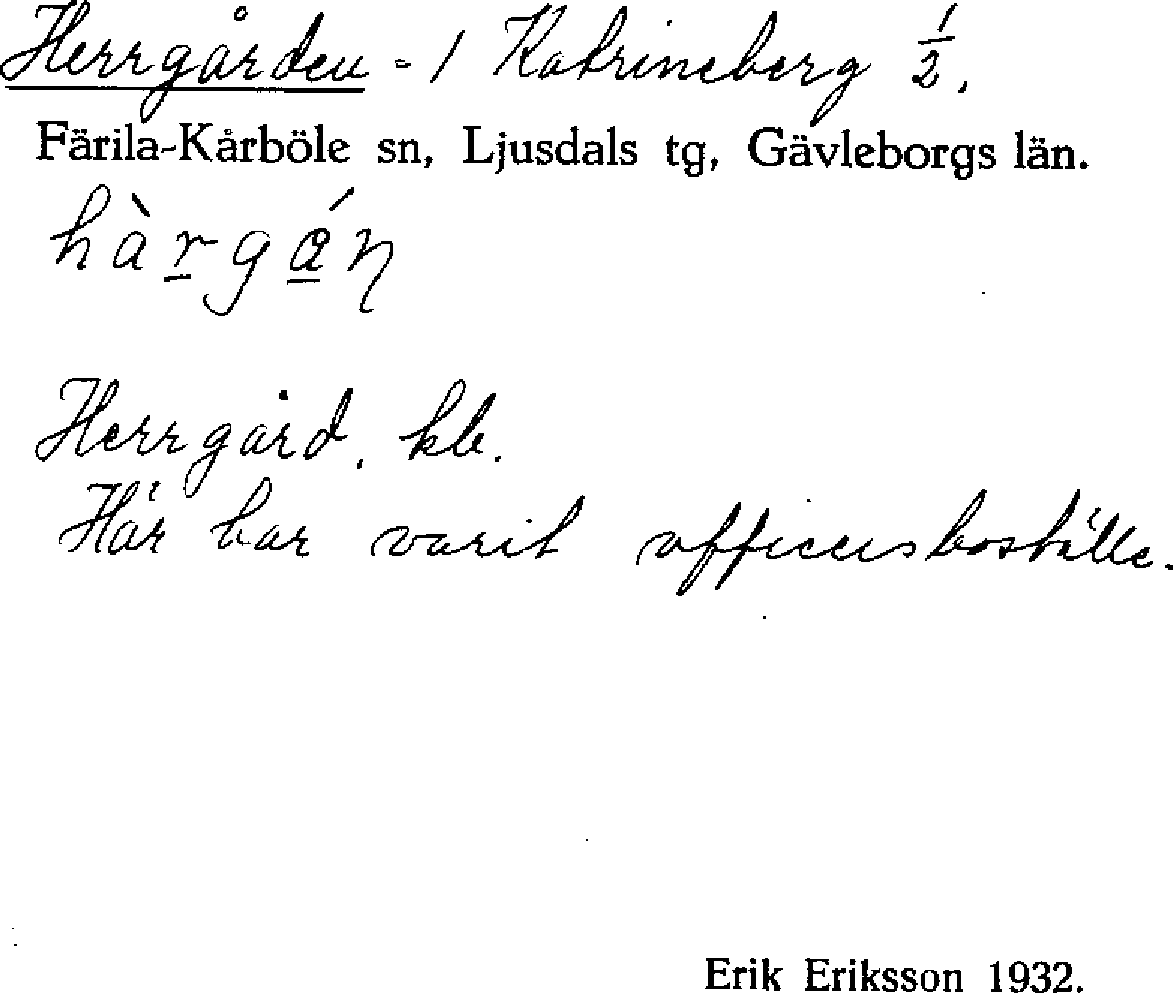 Herrgården = 1 Katrineberg 1/2.
Färila-Kårböle sn, Ljusdals tg, Gävleborgs län.
hàrgǻn
Herrgård. kb.
Här har varit officersboställe.
Erik Eriksson 1932.